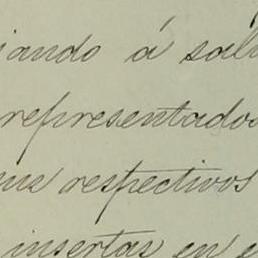 iando á sal
representados
sus respectivos
insertas en e